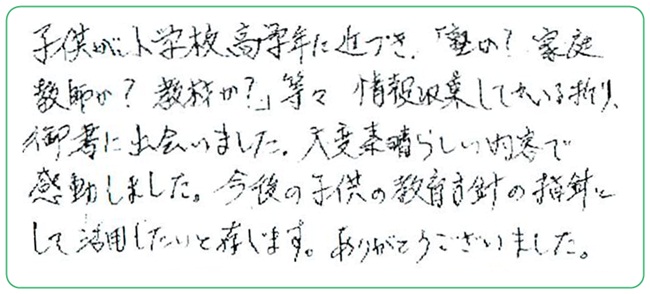 子供が小学校高学年に近づき、「塾か？家庭
教師か？教材か？」等々 情報収集している折り、
御書に出会いました。大変素晴らしい内容で
感動しました。今後の子供の教育方針の指針に
して活用したいと存じます。ありがとうございました。